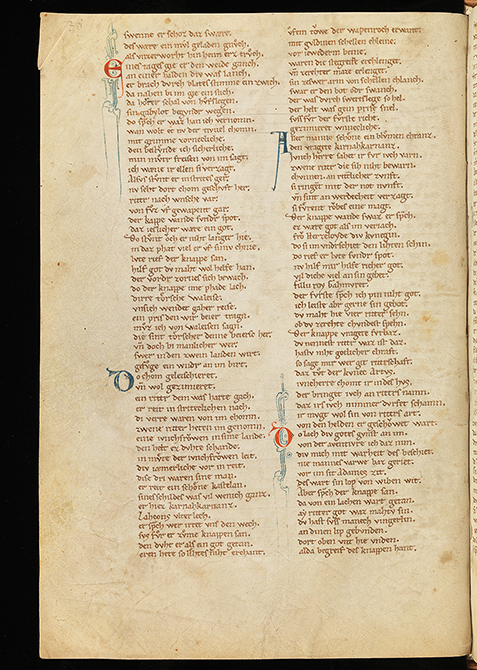 swenne er schoz daz swære.
des wære ein mvl geladen gnvͦch.
als vnzerworht hin heim erz trvͦch.
Eines tages gie er den weide ganch.
an einer halden div was lanch.
er brach dvrch blates stimme ein zwich.
da nahen bi im gie ein stich.
da horter schal von hvfslegen.
sin gabylot begvnder wegen.
do sprach er waz han ich vernomn.
wan wolt er nv der tivuel chomn.
mit grimme zornecliche.
den bestvnde ich sicherliche.
min mvter freisen von im sagt.
ich wæne ir ellen si verzagt.
Alsvs stvnt er in strites ger.
nv seht dort chom geschvft her.
riter nach wnsche var.
von fvz vf gewapent gar.
der knappe wande svnder spot.
daz ieslicher wære ein got.
do stvnt ovch er niht langer hie.
in daz phat viel er vf siniv chnie.
lvte rief der knappe san.
hilf got dv maht wol helfe han.
der vorder zornes sich bewach.
do der knappe ime phade lach.
dirre tôrsche waleise.
vnsich wendet gaher reise.
ein pris den wir beier tragn.
mvz ich von waleisen sagn.
die sint tôrscher denne beiersc her.
vñ doch bi manlicher wer.
swer in den zwein landen wirt.
gefvge ein wnder an im birt.
Do chom geleischieret.
vñ wol gezimieret.
ein riter dem was harte gach.
er reit in stritechlichen nach.
di verre waren von im chomn.
zwene riter heten im genomn.
eine ivnchfrôwen in sime lande.
den helt ez dvhte schande.
in mvͦte der ivnchfrôwen leit.
div iæmerliche vor in reit.
dise dri waren sine man.
er reit ein schône kastelan.
sines schildes was vil wenich ganz.
er hiez karnahkarnanz.
Lahcons vlterlech.
er sprach wer irret vns den wech.
svs fvr er zvme knappen san.
den dvht er als ein got getan.
ern hete so lihtes niht erchant.
vfem tôwe der wapenroch erwant.
mit guldinen schellen chleine.
vor iewederm beine.
waren die stegreife erchlenget.
vñ ze rehter maze erlenget.
sin zeswer arm von schellen chlanch.
swar ern bot oder swanch.
der was dvrch swertslege so hel.
der helt was gein prise snel.
svs fvr der fvrste riche.
gezimieret wnnecliche.
Aller manne schône ein blvmen chranz.
den vragete karnahkarnanz.
ivnch herre saht ir fvr ivch varn.
zwene riter die sih niht bewarn.
chvnnen an riterlicher zvnft.
si ringent mit der not nvnft.
vñ sint an werdecheit verzagt.
si fvrent rôbes eine magt.
Der knappe wande swaz er sprach.
ez wære got als im veriach.
frô herzeloyde div kvnegin.
do si im vnderschiet den liehten schin.
do rief er lvte svnder spot.
nv hilf mir hilfe richer got.
vil diche viel an sin gebet.
fillu roy Gahmvret.
der fvrste sprach ich pin niht got.
ich leiste aber gerne sin gebot.
dv maht hie vier riter sehn.
ob dv ze rehte chvndest spehn.
Der knappe vragete fvrbaz.
dv nennest riter waz ist daz.
hastv niht gotlicher chraft.
so sage mir wer git riterschaft.
daz tvt der kvnec artvs.
ivncherre chomt ir in des hvs.
der bringet ivch an riters namn.
daz irs ivch nimmer dvrfet schamn.
ir mvgt wol sin von riters art.
von den helden er geschôwet wart.
Do lach div gotes gvnst an im.
von der aventivre ich daz nim.
div mich mit warheit des beschiet.
nie mannes varwe baz geriet.
vor im sit adames zit.
des wart sin lop von wiben wit.
Aber sprach der knappe san.
da von ein lachen wart getan.
ay riter got waz mahtv sin.
dv hast svs manech vingerlin.
an dinen lip gebvnden.
dort oben vnt hie vnden.
alda begreif des knappen hant.